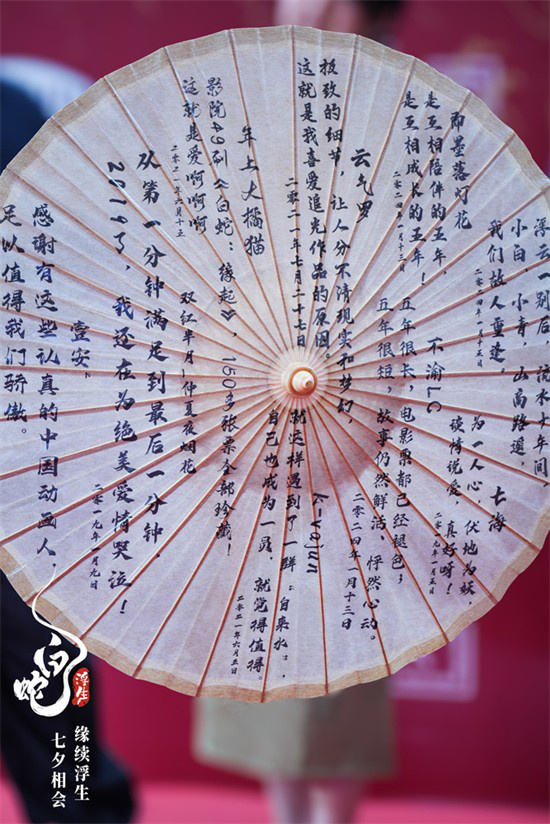 浮云一别后，流水十年间，
小白、小青，山高路遥，
我们故人重逢。
二〇二四年一月十五日
七海
为一人心，伏地为妖，
谈情说爱，真好呀！
二〇一九年一月五日
即墨落灯花
是互相陪伴的五年，
是互相成长的五年！
二〇二四年一月十三日
不渝LC
五年很长，电影票都已经褪色；
五年很短，故事仍然鲜活、怦然心动。
二〇二四年一月十三日
云气罗
极致的细节，让人分不清现实和梦幻，
这就是我喜爱追光作品的原因。
二〇二一年七月二十七日
k-yajun
就这样遇到了一群“自来水”，
自己也成为一员，就觉得值得。
二〇二一年六月五日
年上大橘猫
影院49刷《白蛇：缘起》，150多张票全部珍藏！
这就是爱啊啊啊
二〇二一年六月十五
双红半月|仲夏夜烟花
从第1分钟满足到最后一分钟，
2019了，我还在为绝美爱情哭泣！
二〇一九年一月九日
壹安、
感谢有这些认真的中国动画人，
足以值得我们骄傲。
白蛇
浮生
缘续浮生
七夕相会